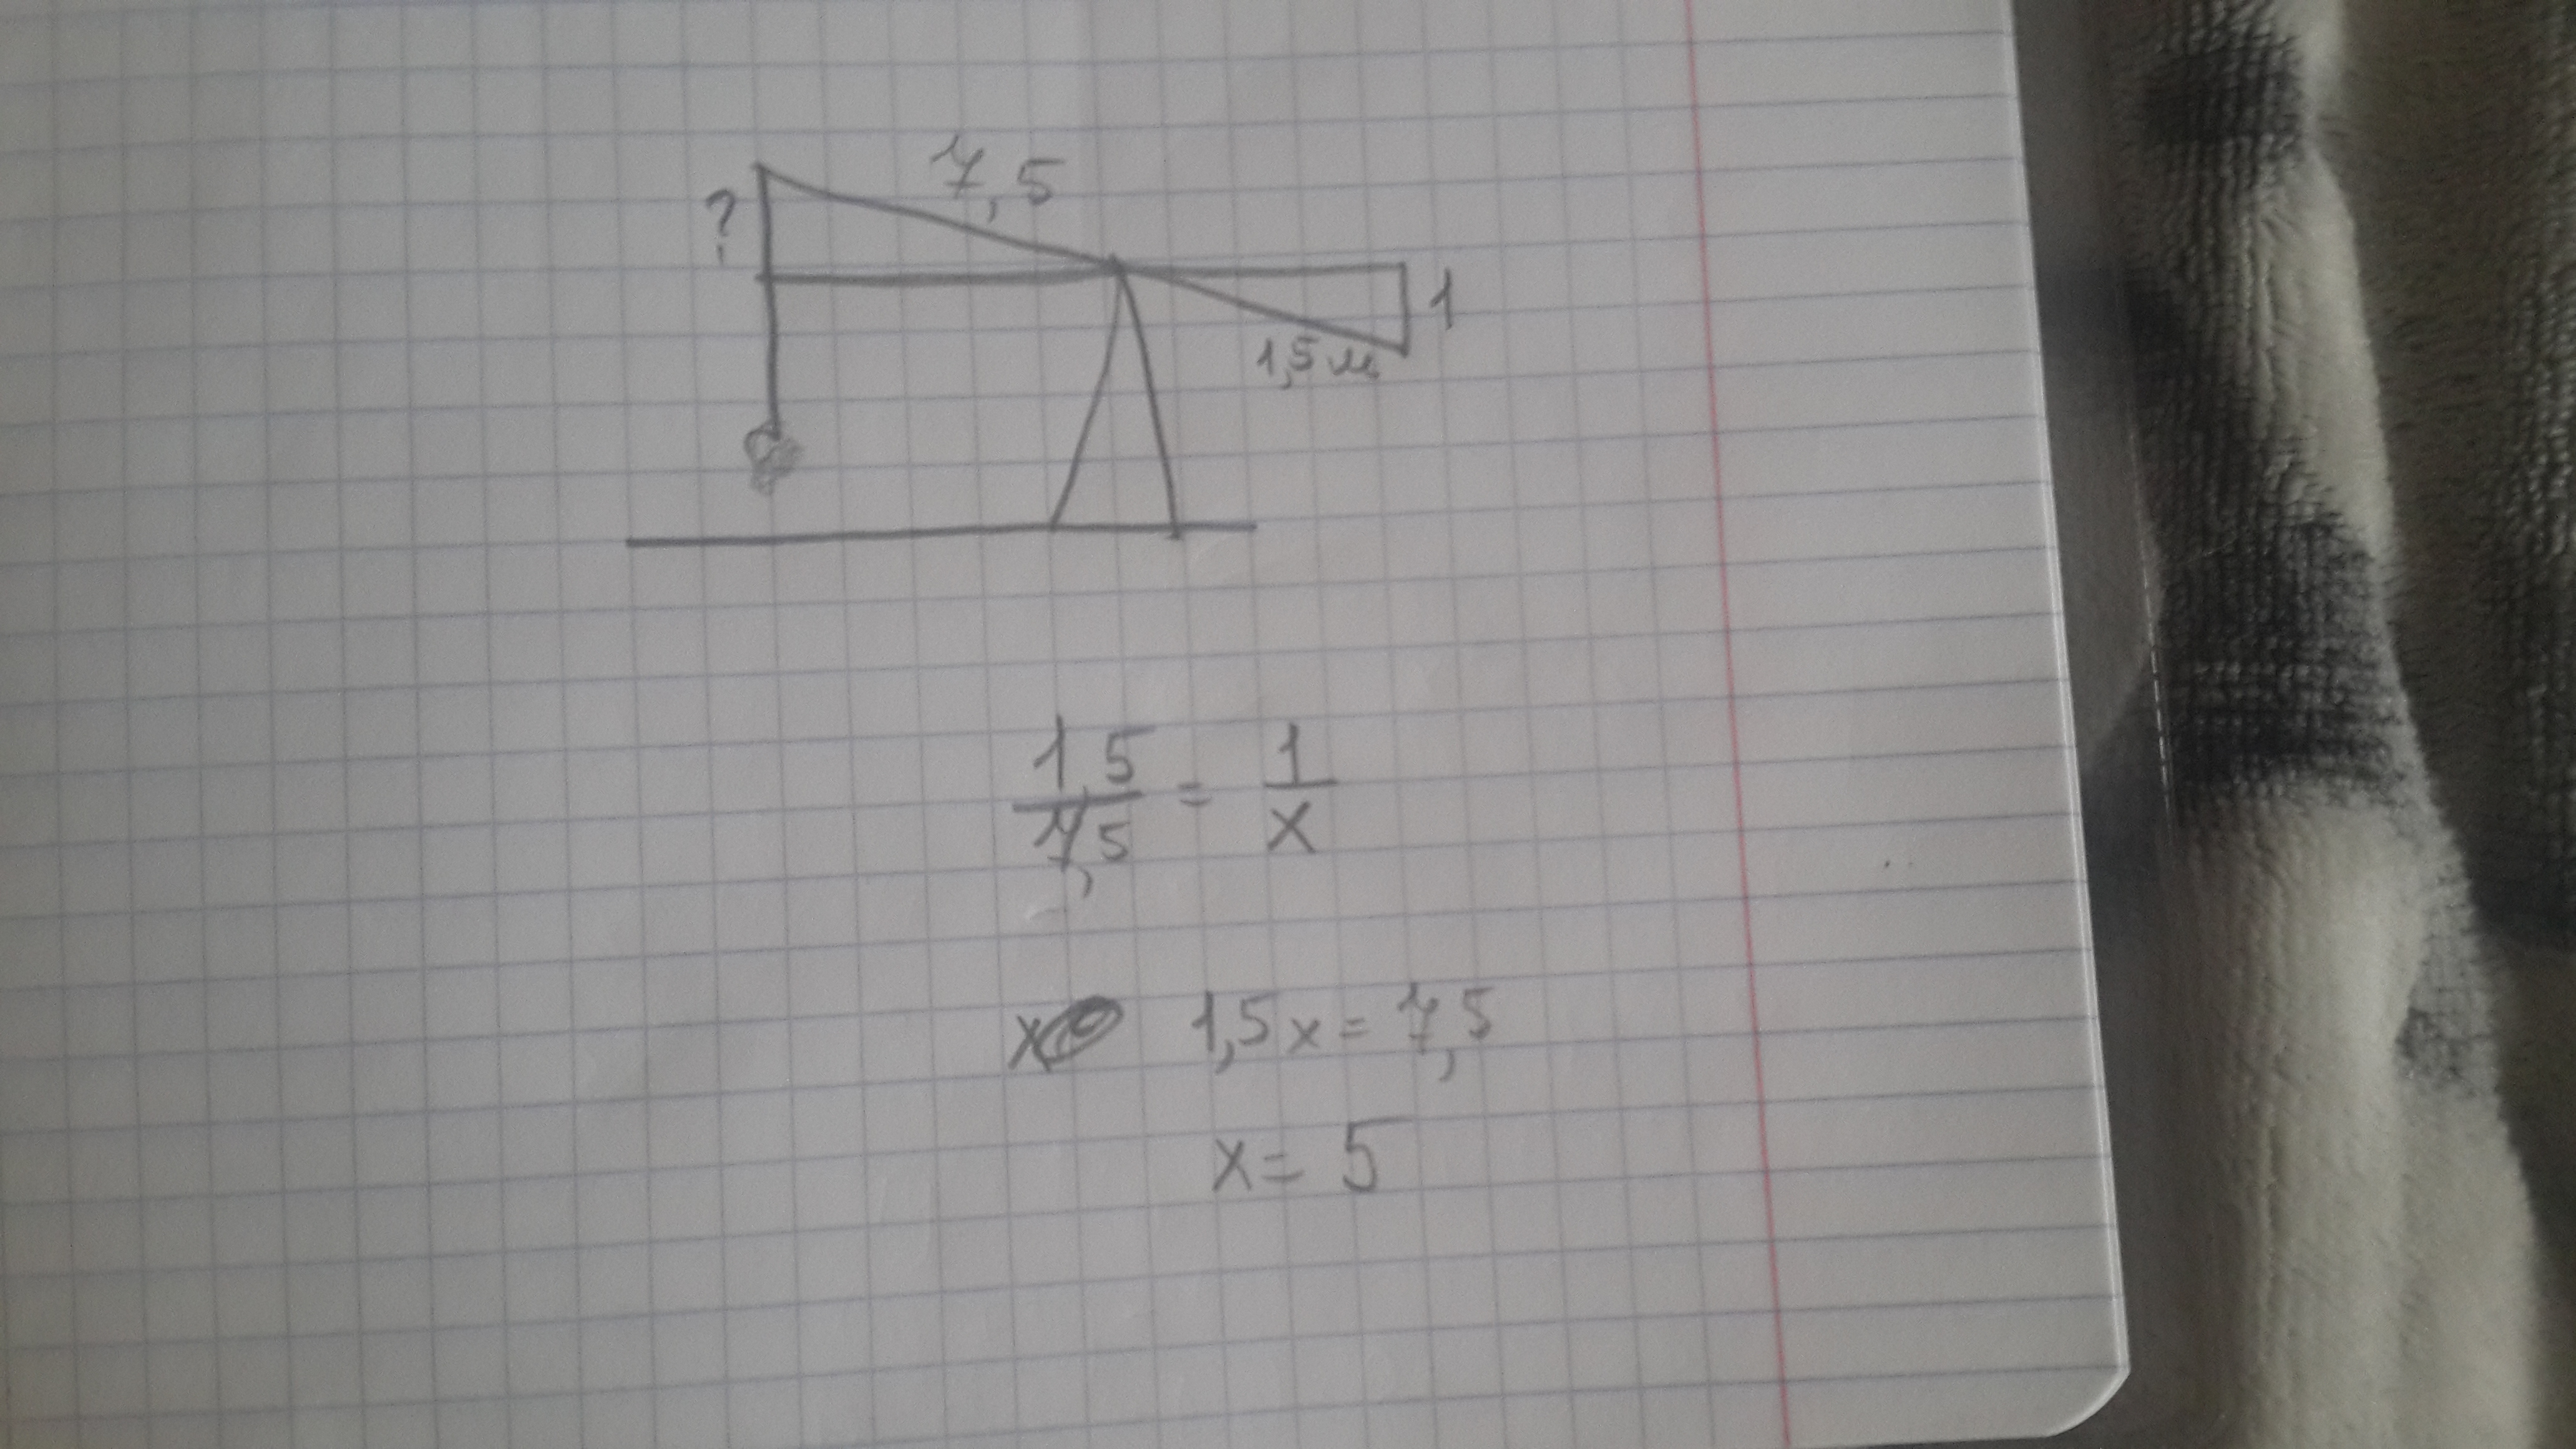 7,5
?
1
1,5 м
1,5/7,5 = 1/x
x 1,5x = 7,5
x = 5